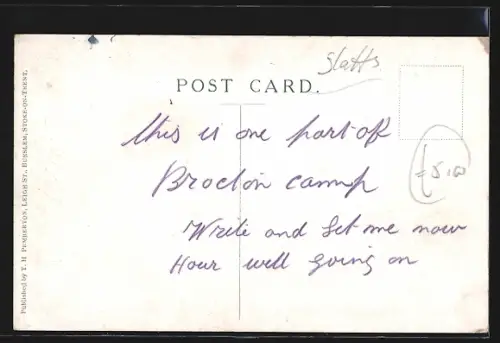 Staffs
POST CARD.
this is one part of
Brocton camp
Write and let me now
Hour well going on
£5.00
Published by T. H. PEMBERTON, LEIGH ST., BURSLEM, STOKE-ON-TRENT.